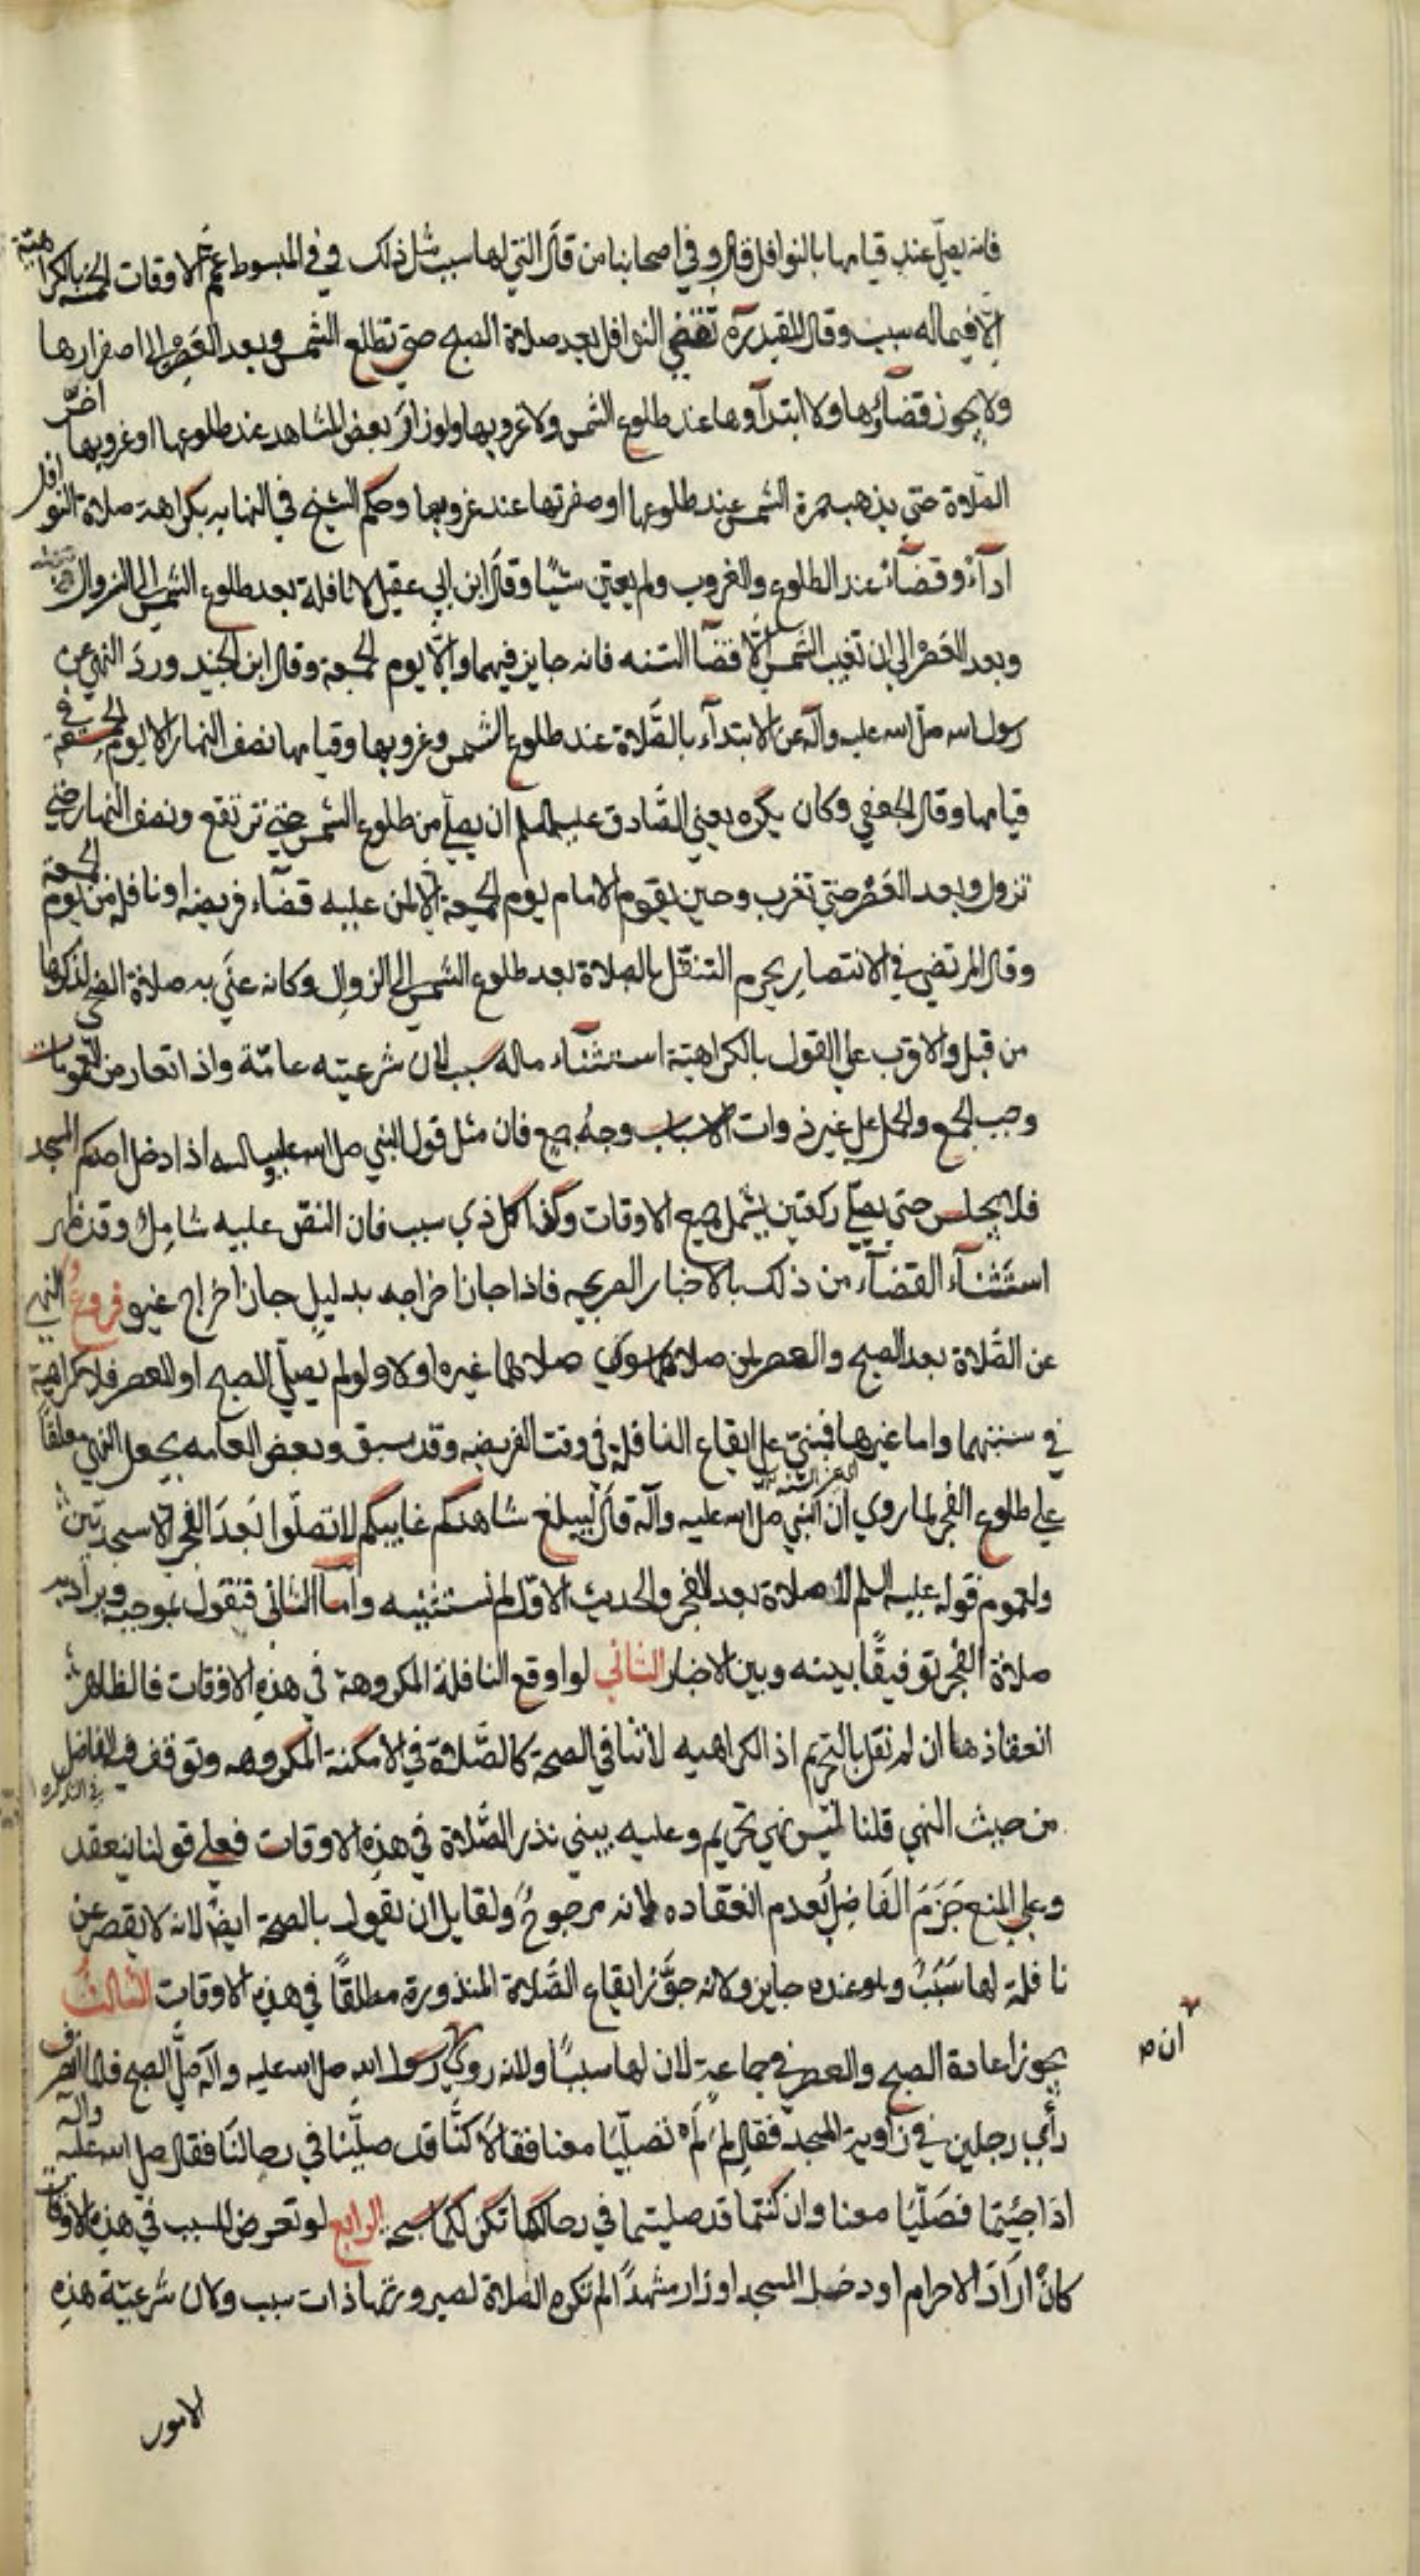 فانه يصلي عند قيامها بالنوافل قال وفي اصحابنا من قال التي لها سبب مثل ذلك وفي المبسوط عمم الاوقات الخمسة بالكراهية
الا فيما له سبب وقال المفيد ره تقضي النوافل بعد صلاة الصبح حتى تطلع الشمس وبعد العصر الى اصفرارها
ولا يجوز قضآؤها ولا ابتدآؤها عند طلوع الشمس ولا غروبها ولو زار بعض المشاهد عند طلوعها او غروبها اخّر
الصلاة حتى يذهب حمرة الشمس عند طلوعها او صفرتها عند غروبها وحكم الشيخ في النهايه بكراهة صلاة النوافل
ادآءً وقضآءً عند الطلوع والغروب ولم يعين شيئا وقال ابن ابي عقيل لا نافلة بعد طلوع الشمس الى الزوال
وبعد العصر الى ان تغيب الشمس الّا قضآ السنه فانه جايز فيهما والّا يوم الجمعة وقال ابن الجنيد ورد النهي عن
رسول الله صلى الله عليه وآله عن الابتدآء بالصّلاة عند طلوع الشمس وغروبها وقيامها نصف النهار الا يوم الجمعة في
قيامها وقال الجعفي وكان يكره يعني الصّادق عليه السلم ان يصلّي من طلوع الشمس حتى ترتفع ونصف النهار حتى
تزول وبعد العصر حتى تغرب وحين يقوم الامام يوم الجمعة الا لمن عليه قضآء فريضة او نافلة من يوم الجمعة
وقال المرتضى في الانتصار يحرم التنفّل بالصلاة بعد طلوع الشمس الى الزوال وكانه عني به صلاة الضحى لذكرها
من قبل والاقرب على القول بالكراهية استثنآء ماله سبب لان شرعيته عامّة واذا تعارض العمومات
وجب الجمع والحمل على غير ذوات الاسباب وجهُ جمع فان مثل قول النبي صلى الله عليه وآله اذا دخل احدكم المسجد
فلا يجلس حتى يصلّي ركعتين يشمل جميع الاوقات وكذا كل ذي سبب فان النص عليه شامل وقد ظهر
استثنآء القضآء من ذلك بالاخبار الصريحه فاذا جاز اخراجه بدليلٍ جاز اخراج غيره فروعٌ و النهي
عن الصّلاة بعد الصبح والعصر لمن صلاهما سوآء صلاهما غيره اولا ولو لم يصلّي الصبح او العصر فلا كراهية
في سنتهما واما غيرها فبنيَ على ايقاع النافلة في وقت الفريضه وقد سبق وبعض العامه يجعل النهي معلقاً
على طلوع الفجر لما روي ان النبي صلى الله عليه وآله قال ليبلغ شاهدكم غايبكم لا تصلّوا بَعدَ الفجر الا سجدتين
ولعموم قوله عليه السلم لا صلاة بعد الفجر والحديث الاوّل لم نستثبته وامّا الثانى فنقول بموجبه ويراد به
صلاة الفجر توفيقًا بينه وبين الاخبار الثاني لو اوقع النافلة المكروهة في هذهِ الاوقات فالظاهر
انعقادها ان لم نقل بالتحريم اذ الكراهيه لا تنافي الصحة كالصّلاة في الامكنة المكروهه وتوقف فيه الفاضل في التذكره
من حيث النهي قلنا ليسَ نهي تحريم وعليه يبنى نذر الصّلاة في هذهِ الاوقات فعلى قولنا ينعقد
وعلى المنع جَزَمَ الفَاضِلُ بعدم انعقاده لانه مرجوحٌ ولقايل ان يقول بالصحة ايضًا لانه لا يقصر عن
نافلةٍ لها سَبَبٌ وهو عنده جايز ولانه جوَّز ايقاع الصّلاة المنذورة مطلقًا في هذهِ الاوقات الثالث
يجوز اعادة الصبح والعصر في جماعةٍ لان لها سببًا ولانه روي ان رسول الله صلى الله عليه وآله صلّى الصبح فلما انصرف
رأى رجلين في زاوية المسجد فقال لِمَ لَم تصلّيا معنا فقالا كنّا قد صلّينا في رحالنا فقال صلى الله عليه وآله
اذا جئتما فصَلّيَا معنا وان كنتما قد صليتما في رحالكما تكن لكما سبحة الرابع لو تعرض للسبب في هذه الاوقات
كانْ ارَادَ الاحرام او دخل المسجد او زار مشهدًا لم تكره الصلاة لصيرورتها ذات سبب ولان شرعيّة هذهِ
الامور